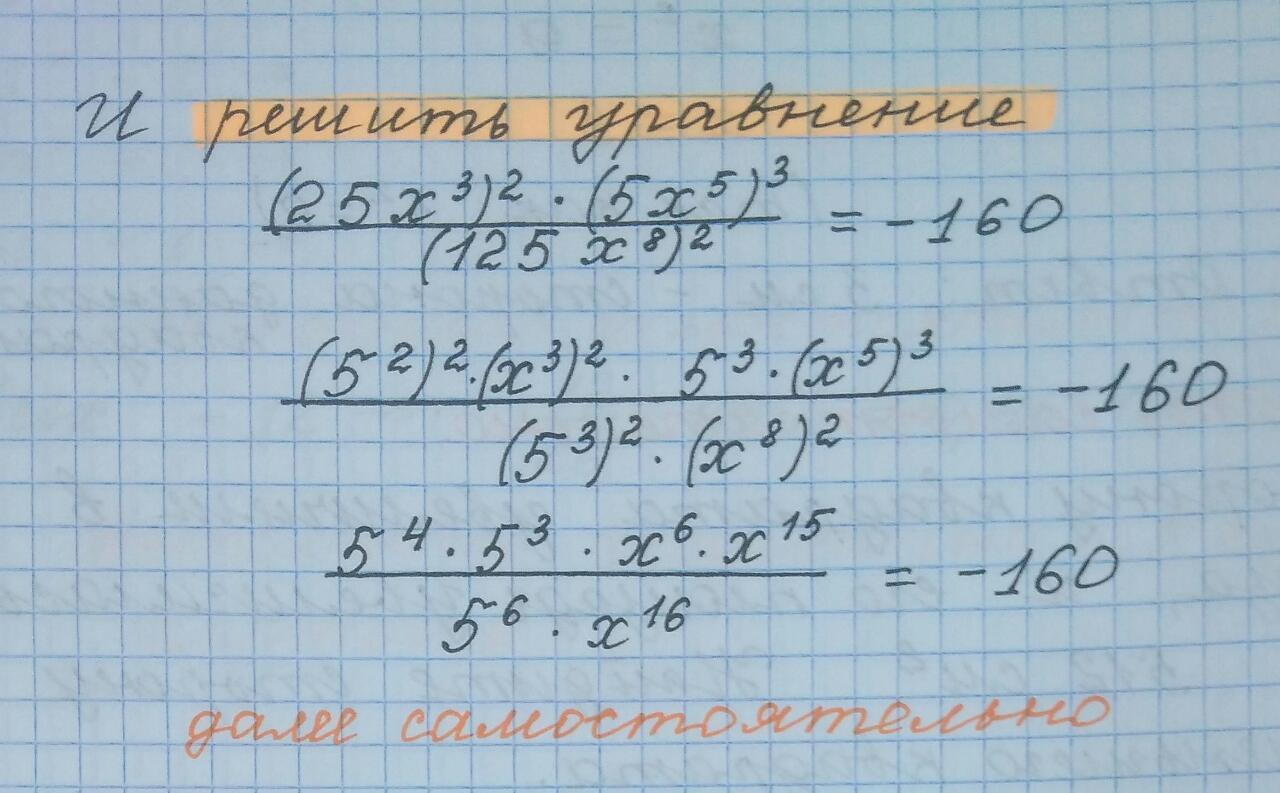 И решить уравнение
(25x³)² · (5x⁵)³ / (125x⁸)² = -160
(5²)² · (x³)² · 5³ · (x⁵)³ / (5³)² · (x⁸)² = -160
5⁴ · 5³ · x⁶ · x¹⁵ / 5⁶ · x¹⁶ = -160
далее самостоятельно